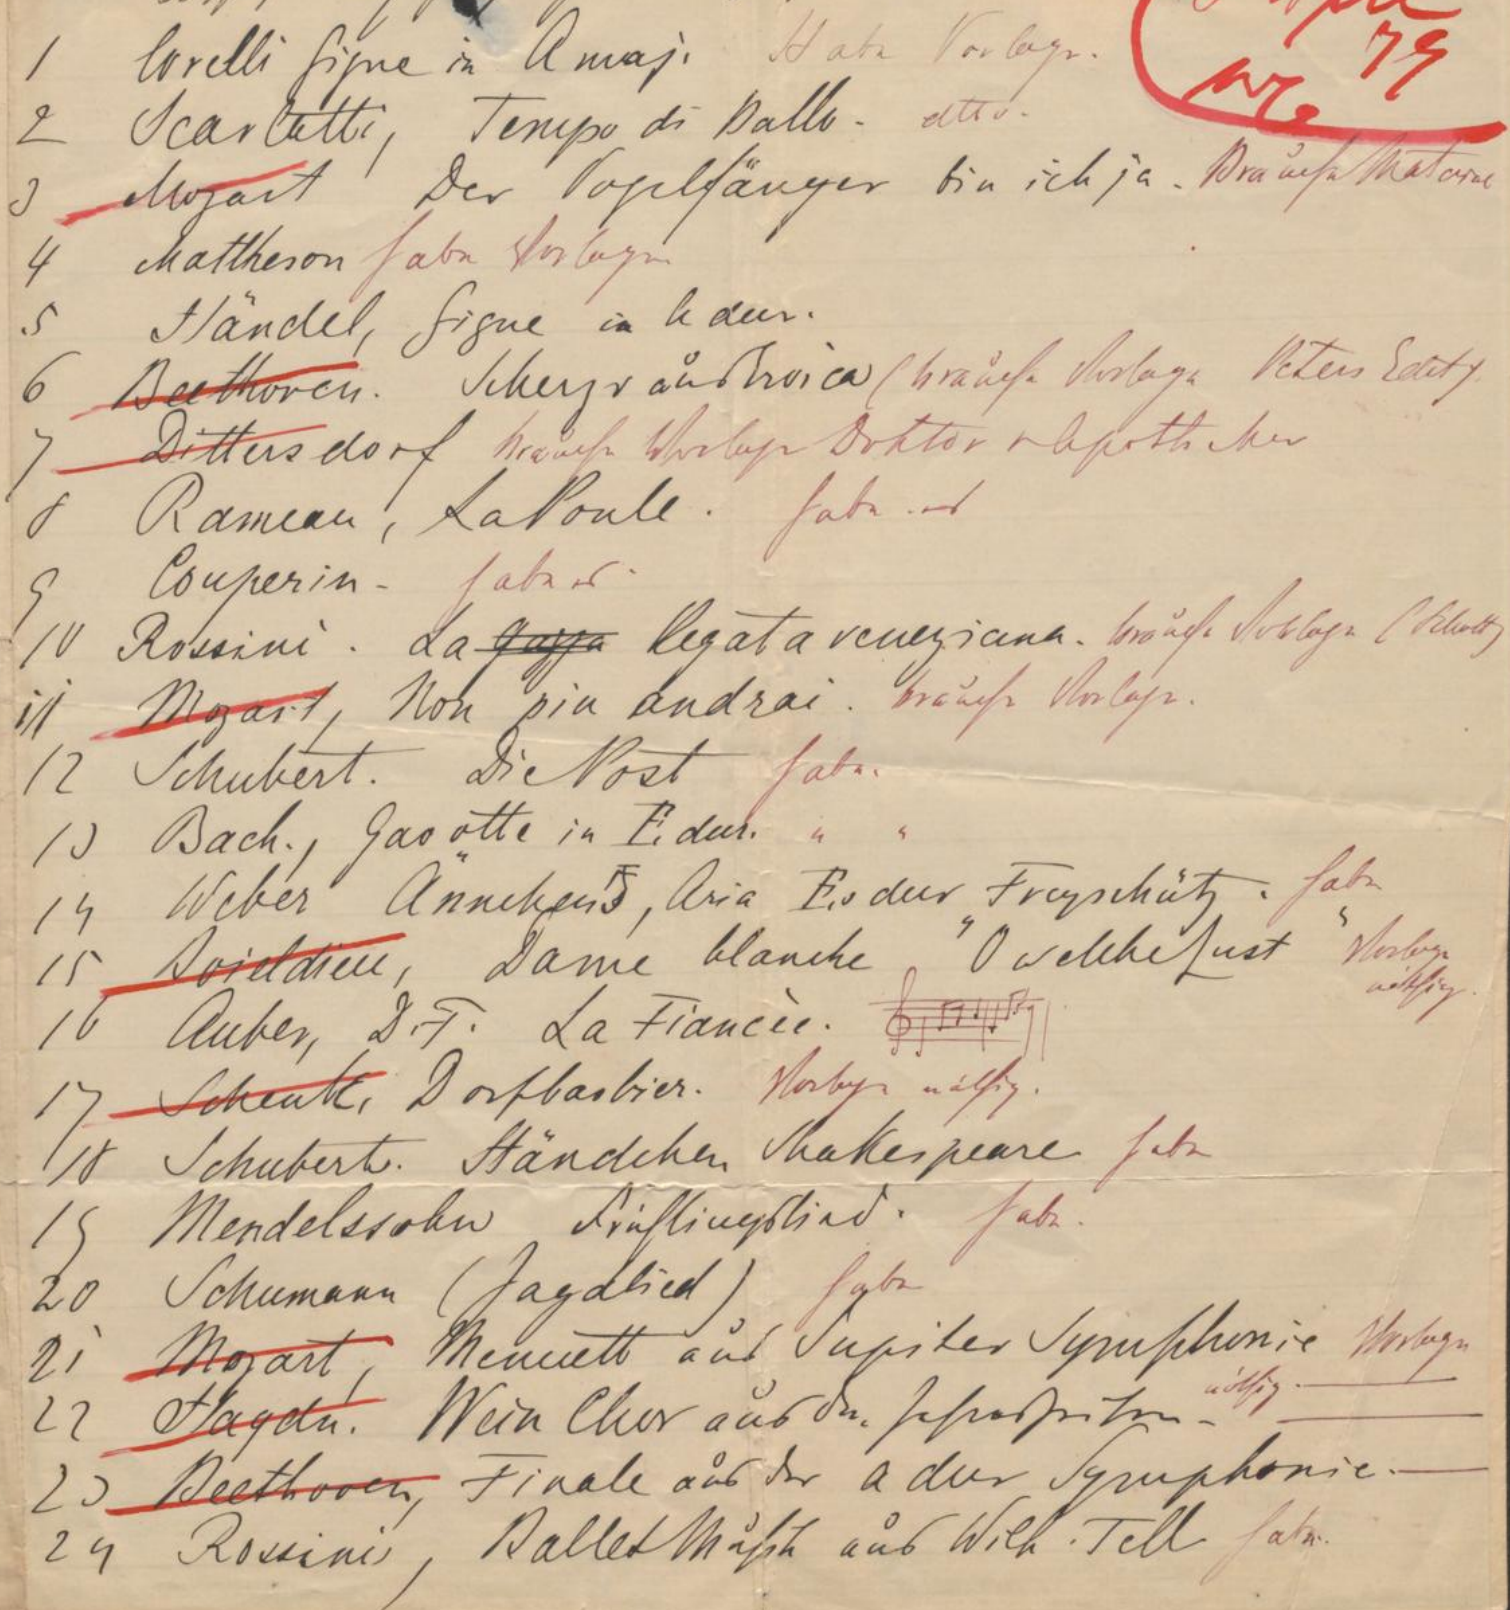 1 Corelli Gigue in A maj. Habe Vorlage.
79
2 Scarlatti, Tempo di Ballo - detto.
3 Mozart Der Vogelfänger bin ich ja. Brauche
4 Mattheson habe Vorlage
5 Händel, Gigue in
6 Beethoven. Scherzo aus Eroica (brauche Vorlage Peters
7 Dittersdorf brauche Vorlage Doktor Apotheker
8 Rameau, La Poule. habe
9 Couperin - habe
10 Rossini. La Gazza Regata veneziana. brauche Vorlage (Schott)
11 Mozart, Non piu andrai. brauche Vorlage.
12 Schubert. Die Post habe.
13 Bach., Gavotte in E dur. " "
14 Weber Ännchens, Aria Es dur Freyschütz. habe
15 Boieldieu, Dame blanche, "O welche Lust" Vorlage
nöthig.
16 Auber, D.F. La Fiancèe.
17 Schenk, Dorfbarbier. Vorlage nöthig.
18 Schubert. Ständchen Shakespeare habe
19 Mendelssohn Frühlingslied. habe.
20 Schumann (Jagdlied) habe
21 Mozart, Menuett aus Jupiter Symphonie Vorlage
nöthig.
22 Haydn. Wein Chor aus den Jahreszeiten -
23 Beethoven, Finale aus der a dur Symphonie. —
24 Rossini, Ballet Musik aus Wilh. Tell habe.